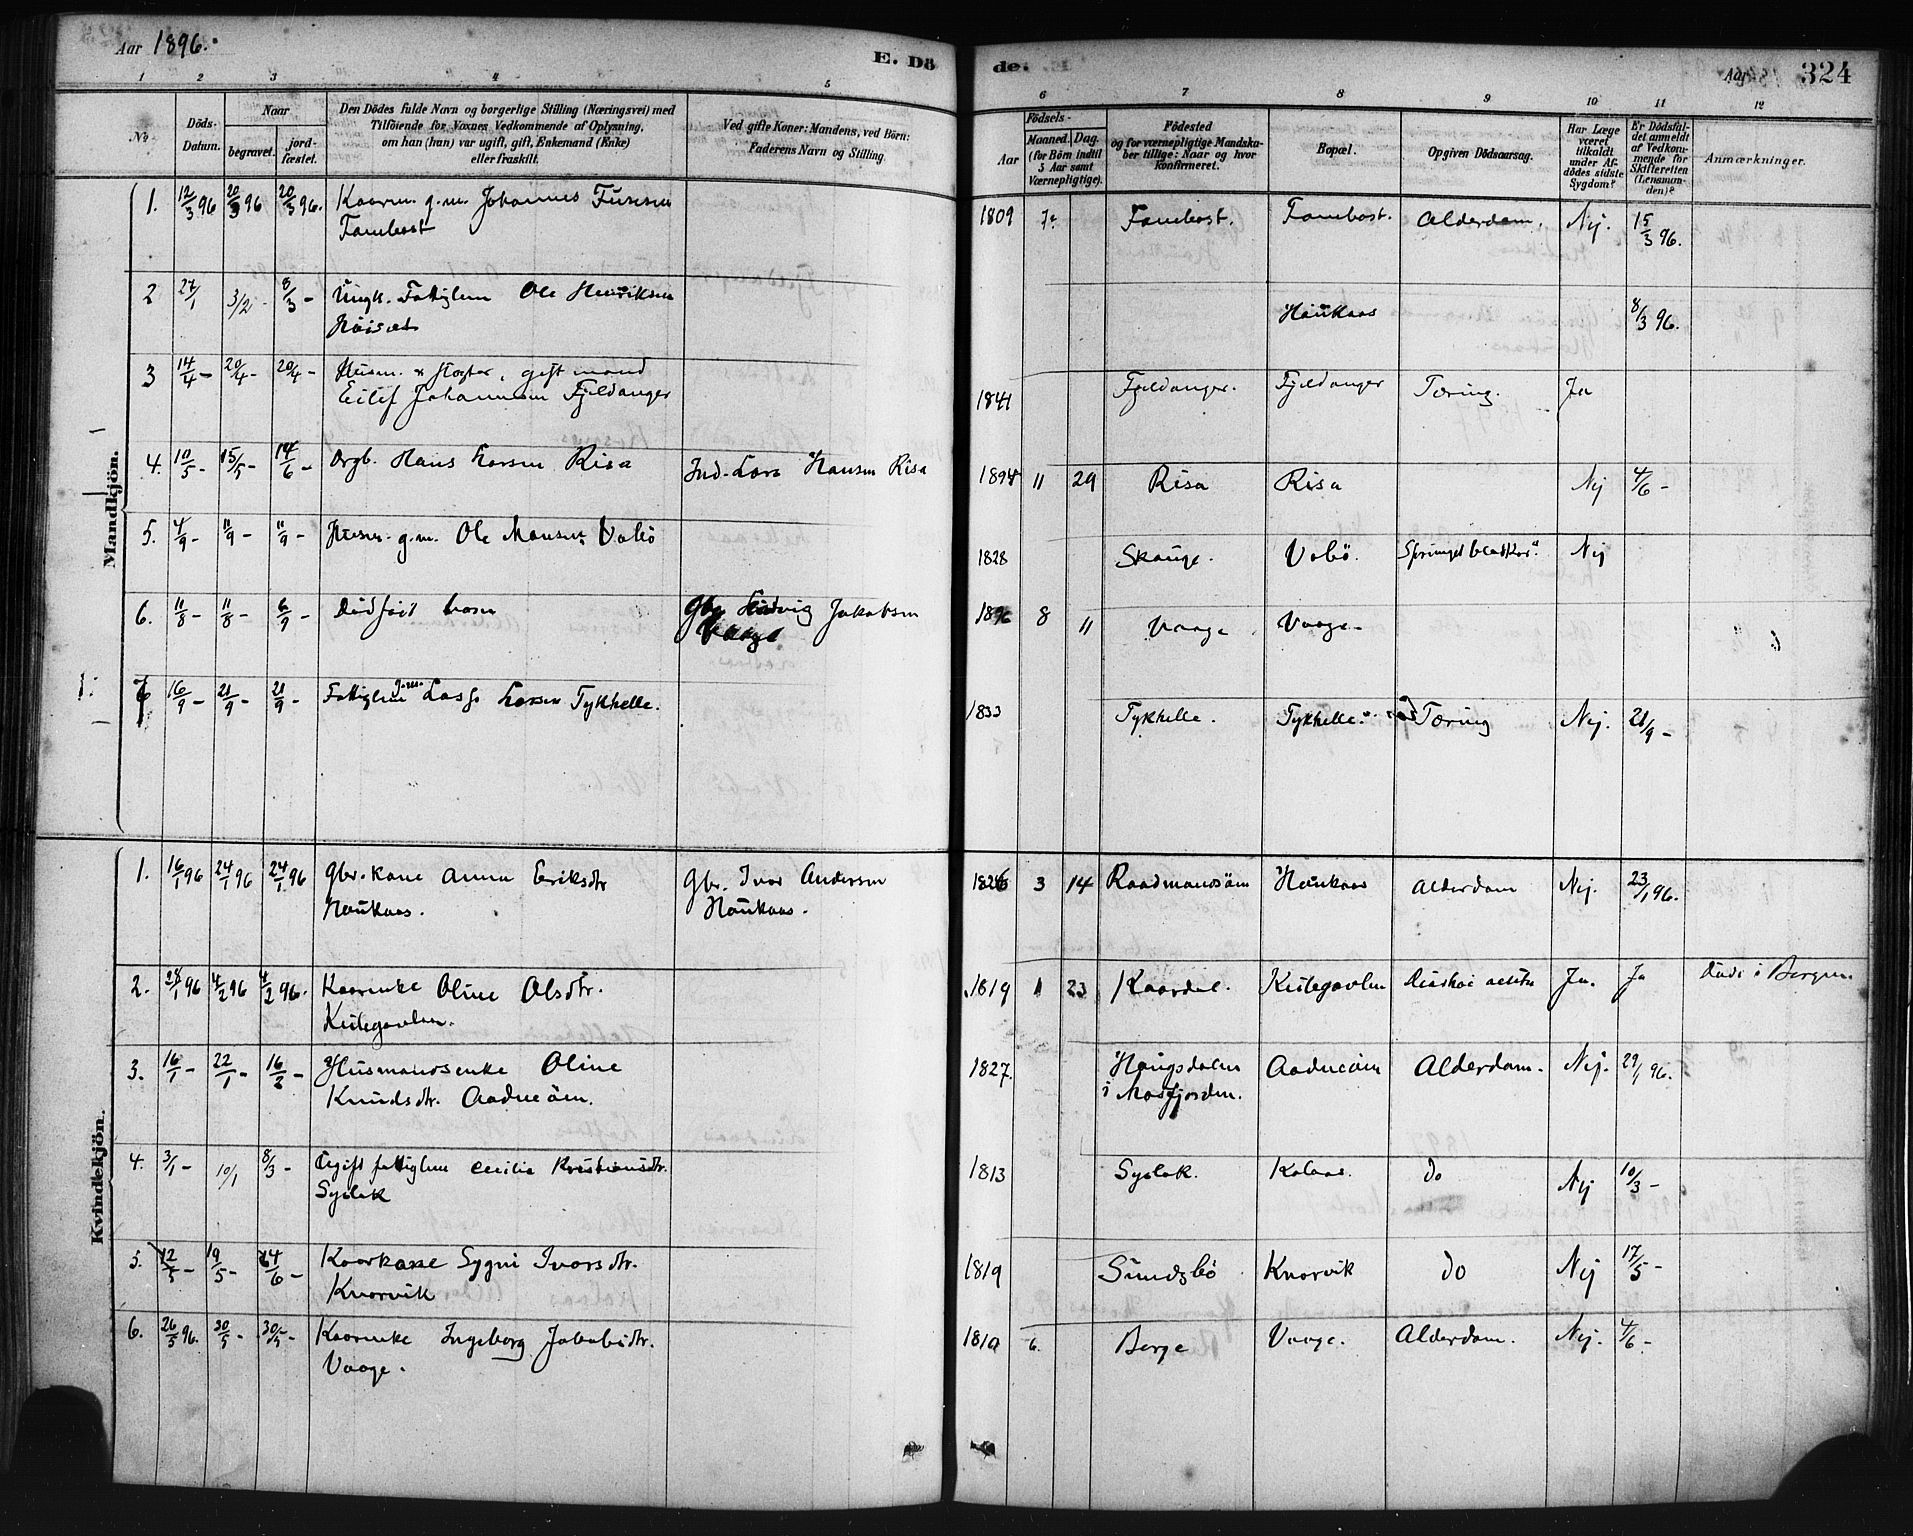 Aar 1896.
E. Dö
de.
Aar
324
1 2 3 4 5 6 7 8 9 10 11 12
No.
Döds-Datum.
Naar
begravet.
jord-fæstet.
Den Dödes fulde Navn og borgerlige Stilling (Næringsvei) med
Tilföiende for Voxnes Vedkommende af Oplysning,
om han (hun) var ugift, gift, Enkemand (Enke)
eller fraskilt.
Ved gifte Koner: Mandens, ved Börn:
Faderens Navn og Stilling.
Födsels-
Aar
Maaned.
Dag.
(for Börn indtil
5 Aar samt
Værnepligtige).
Födested
og for værnepligtige Mandska-
ber tillige: Naar og hvor
konfirmeret.
Bopæl.
Opgiven Dödsaarsag.
Har Læge
været
tilkaldt
under Af-
dödes sidste
Sygdom?
Er Dödsfal-
det anmeldt
af Vedkom-
mende for
Skifteretten
(Lensman-
den)?
Anmærkninger.
Mandkjön.
1. 12/3 96 20/3 96 20/3 96. Kaarm. g.m. Johannes
Fambost
1809 Fambost. Fambost. Alderdom. Nej. 15/3 96.
2 27/1 3/2 - 8/3 - Ungk. Fattiglem Ole Henriksen
Haukaas 8/3 96.
3 14/4 - 20/4 - 20/4 - Husm. gift mand
Eilif Johannesen Fjeldanger
1841 Fjeldanger. Fjeldanger Tæring. Ja
4. 10/5 - 15/5 - 14/6 - Hans Larsen Risa
Ind. Lars Hansen Risa
1894 11 29 Risa Risa Nej 4/6 -
5. 4/9 - 11/9 - 11/9 - Husm. g.m. Ole Monsen Vabö
1828 Skauge. Vabö. Nej
6. 11/8 - 11/8 - 6/9 - Dödfödt barn
Gbr. Ludvig Jakobsen
Vaage
1896 8 11 Vaage Vaage
1.
7 16/9 - 21/9 - 21/9 - Fattiglem Lasse Larsen Tykhelle.
1833 Tykhelle. Tykhelle. Tæring Nej. 21/9 -
Kvindekjön.
1. 16/1 96 24/1 96 24/1 96 Gbr. kone Anna Eriksdtr
Haukaas.
Gbr. Ivar Andersen
Haukaas.
1826 3 14 Raadmandsöin Haukaas Alderdom Nej. 23/1 96.
2. 28/1 96 4/2 96 4/2 96. Kaarenke Oline Olsdtr.
Kistegavlen.
1819 1 23 Kaardal. Kistegavlen Ja. Ja Döde i Bergen.
3. 16/1 - 22/1 - 16/2 - Husmandsenke Oline
Knudsdtr. Aadneöin.
1827. Haugsdalen
i Masfjorden. Aadneöin Alderdom. Nej. 29/1 96.
4. 3/1 - 10/1 8/3 - Ugift fattiglem Cecilia Kristiansdtr.
Syslak
1813 Syslak. Kolaas. do Nej 10/3 -
5. 12/5 - 19/5 - 14/6 - Kaarkone Sygni Ivarsdtr.
Knarvik
1819 Sundsbö Knarvik do Nej 17/5 -
6. 26/5 96. 30/5 - 30/5 - Kaarenke Ingeborg Jakobsdtr.
Vaage.
1810 6. Berge Vaage. Alderdom. Nej. 4/6 -